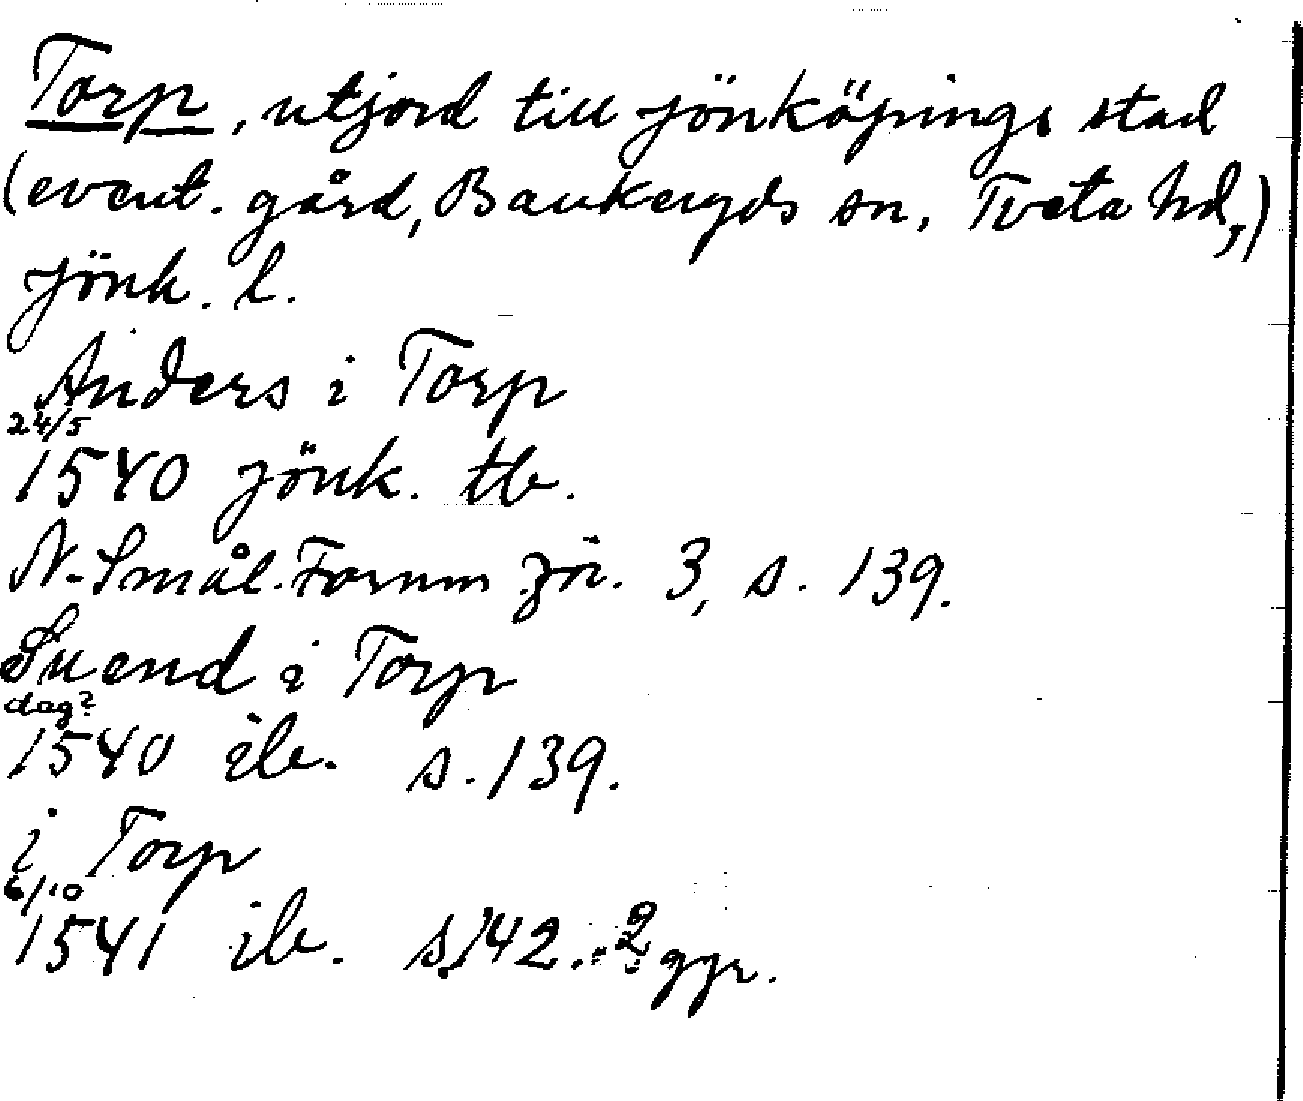 Torp, utjord till Jönköpings stad
(event. gård, Bankeryds sn, Tveta hd,)
Jönk. l.
Anders i Torp
24/5
1540 Jönk. tb.
N. Smål. Fornm för. 3, s. 139.
Suend i Torp
dag?
1540 ib. s. 139.
i Torp
6/10
1541 ib. s. 142. 2 ggr.